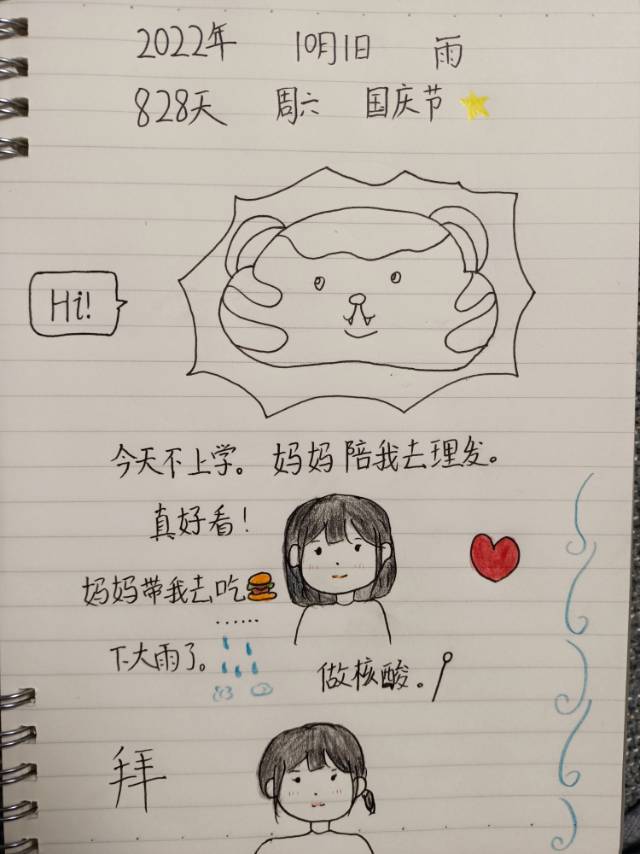 2022年 10月1日 雨
828天 周六 国庆节
Hi!
今天不上学。妈妈陪我去理发。
真好看！
妈妈带我去吃
……
下大雨了。
做核酸。
拜